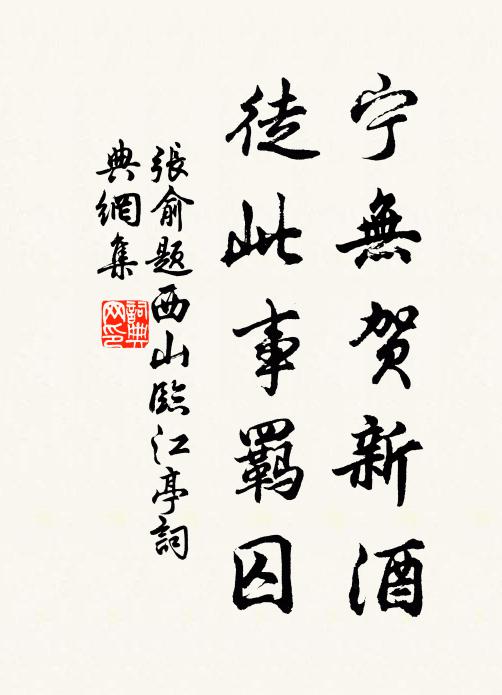 宁無贺新酒
徒此事羁囚
張俞题西山臨江亭詞
典網集
詞典
网印